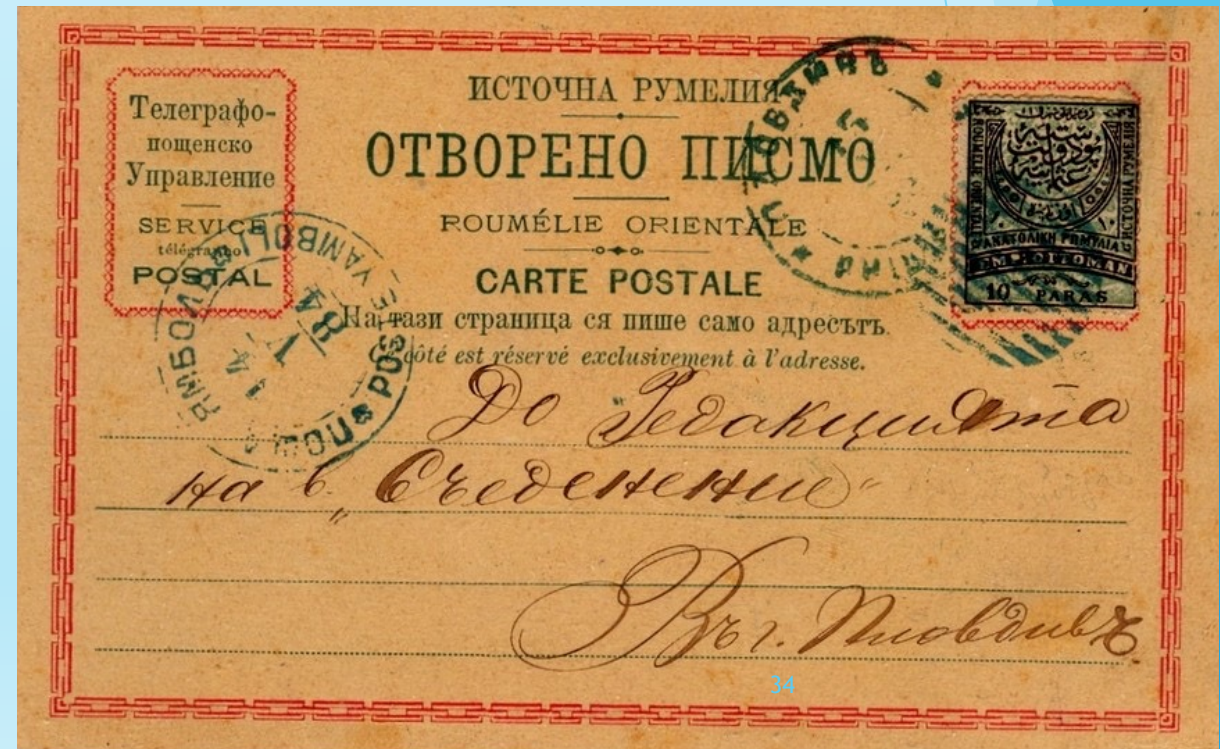 Телеграфо-
пощенско
Управление
SERVICE
POSTAL
ИСТОЧНА РУМЕЛИЯ
ОТВОРЕНО ПИСМО
ROUMÉLIE ORIENTALE
CARTE POSTALE
На тази страница ся пише само адресътъ.
côté est réservé exclusivement à l'adresse.
ПЛОВДИВЪ
ИСТОЧНА РУМЕЛИЯ
ΑΝΑΤΟΛΙΚΗ ΡΩΜΥΛΙΑ
OTTOMAN
10 PARAS
YAMBOLI
84
До Редакцията
на в. „Съеденение“
Въ г. Пловдивъ
34